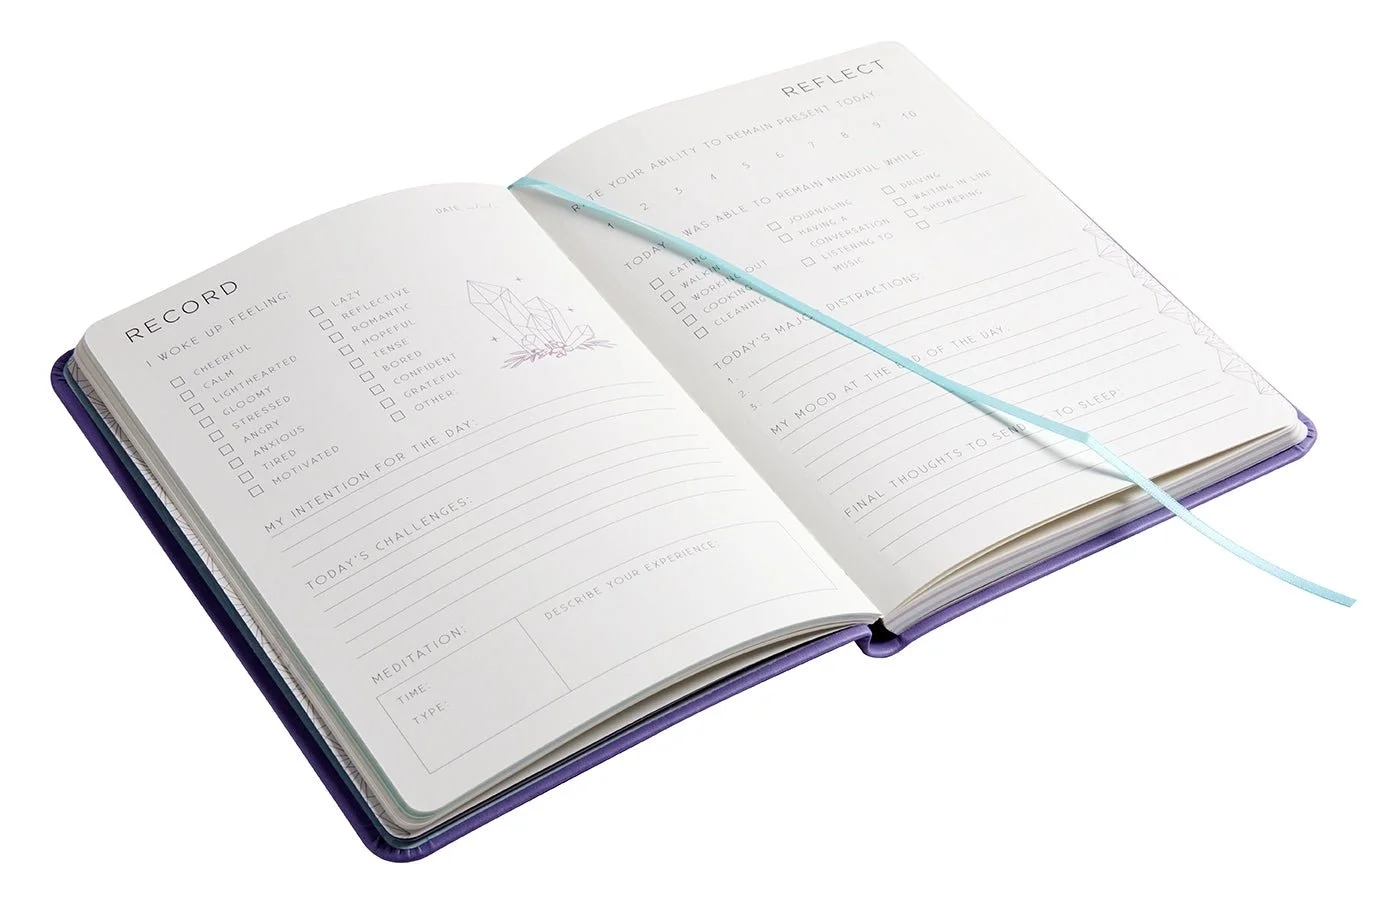 DATE
RECORD
I WOKE UP FEELING:
CHEERFUL
CALM
LIGHTHEARTED
GLOOMY
STRESSED
ANGRY
ANXIOUS
TIRED
MOTIVATED
LAZY
REFLECTIVE
ROMANTIC
HOPEFUL
TENSE
BORED
CONFIDENT
GRATEFUL
OTHER:
MY INTENTION FOR THE DAY:
TODAY'S CHALLENGES:
MEDITATION:
TIME:
TYPE:
DESCRIBE YOUR EXPERIENCE:
REFLECT
RATE YOUR ABILITY TO REMAIN PRESENT TODAY:
1 2 3 4 5 6 7 8 9 10
TODAY I WAS ABLE TO REMAIN MINDFUL WHILE:
EATING
WALKING
WORKING OUT
COOKING
CLEANING
JOURNALING
HAVING A
CONVERSATION
LISTENING TO
MUSIC
DRIVING
WAITING IN LINE
SHOWERING
TODAY'S MAJOR DISTRACTIONS:
1.
2.
3.
MY MOOD AT THE END OF THE DAY:
FINAL THOUGHTS TO SEND ME TO SLEEP: